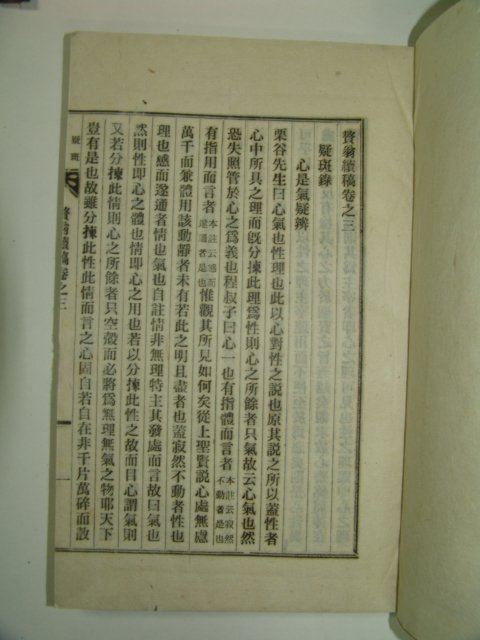 贅翁續稿卷之三
疑斑錄
心是氣疑辨
栗谷先生曰心氣也性理也此以心對性之說也原其說之所以蓋性者
心中所具之理而旣分揀此理爲性則心之所餘者只氣故云心氣也然
恐失照管於心之爲義也程叔子曰心一也有指體而言者本註云寂然不動者是也
有指用而言者本註云感而遂通者是也惟觀其所見如何矣從上聖賢說心處無慮
萬千而兼體用該動靜者未有若此之明且盡者也蓋寂然不動者性也
理也感而遂通者情也氣也自註情非無理特主其發處而言故曰氣也
然則性卽心之體也情卽心之用也若以分揀此性而目心謂氣則
又若分揀此情則心之所餘者只空殼而必將爲無理無氣之物耶天下
豈有是也故雖分揀此性此情而言之心固自若自在非千片萬碎而設
疑斑
贅翁續稿卷之三
一